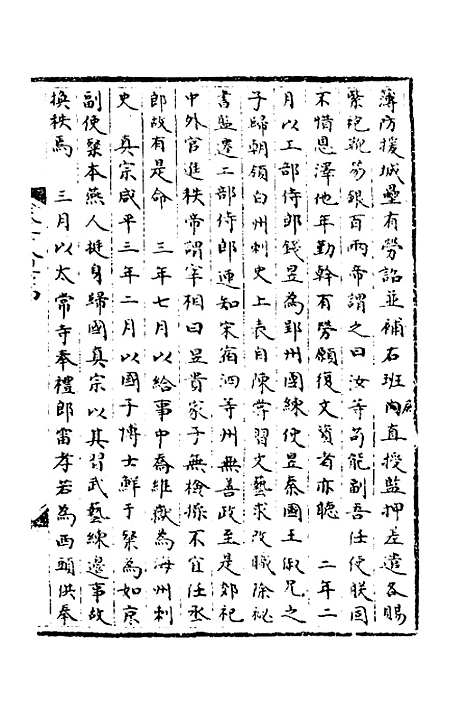 薄防援城壘有勞詔並補右班殿直授監押差遣各賜
緊袍靴笏銀百兩帝謂之曰汝等苟能副吾任使朕固
不惜恩澤他年勤幹有勞願復文資者亦聽　二年二
月以工部侍郎錢昱為郢州團練使昱秦國王俶兄之
子歸朝領白州刺史上表自陳嘗習文藝求改職除祕
書監遷工部侍郎連知宋宿泗等州無善政至是郊祀
中外官進秩帝謂宰相曰昱貴家子無檢操不宜任丞
郎故有是命　三年七月以給事中喬維嶽為海州刺
史　真宗咸平三年二月以國子博士鮮于粲為如京
副使粲本燕人挺身歸國真宗以其習武藝練邊事故
換秩焉　三月以太常寺奉禮郎雷孝若為西頭供奉